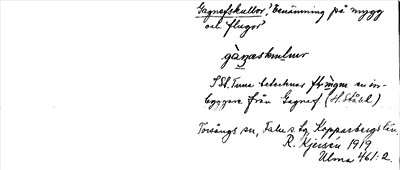 Gagnefskullor, "Benämning på mygg
och flugor"
gàŋæskulur
I St. Tuna betecknar en in-
byggare från Gagnef (H. Ståhl)
Torsångs sn, Falu s. tg, Kopparbergs län.
R. Kjersén 1919
Ulma 461:2.